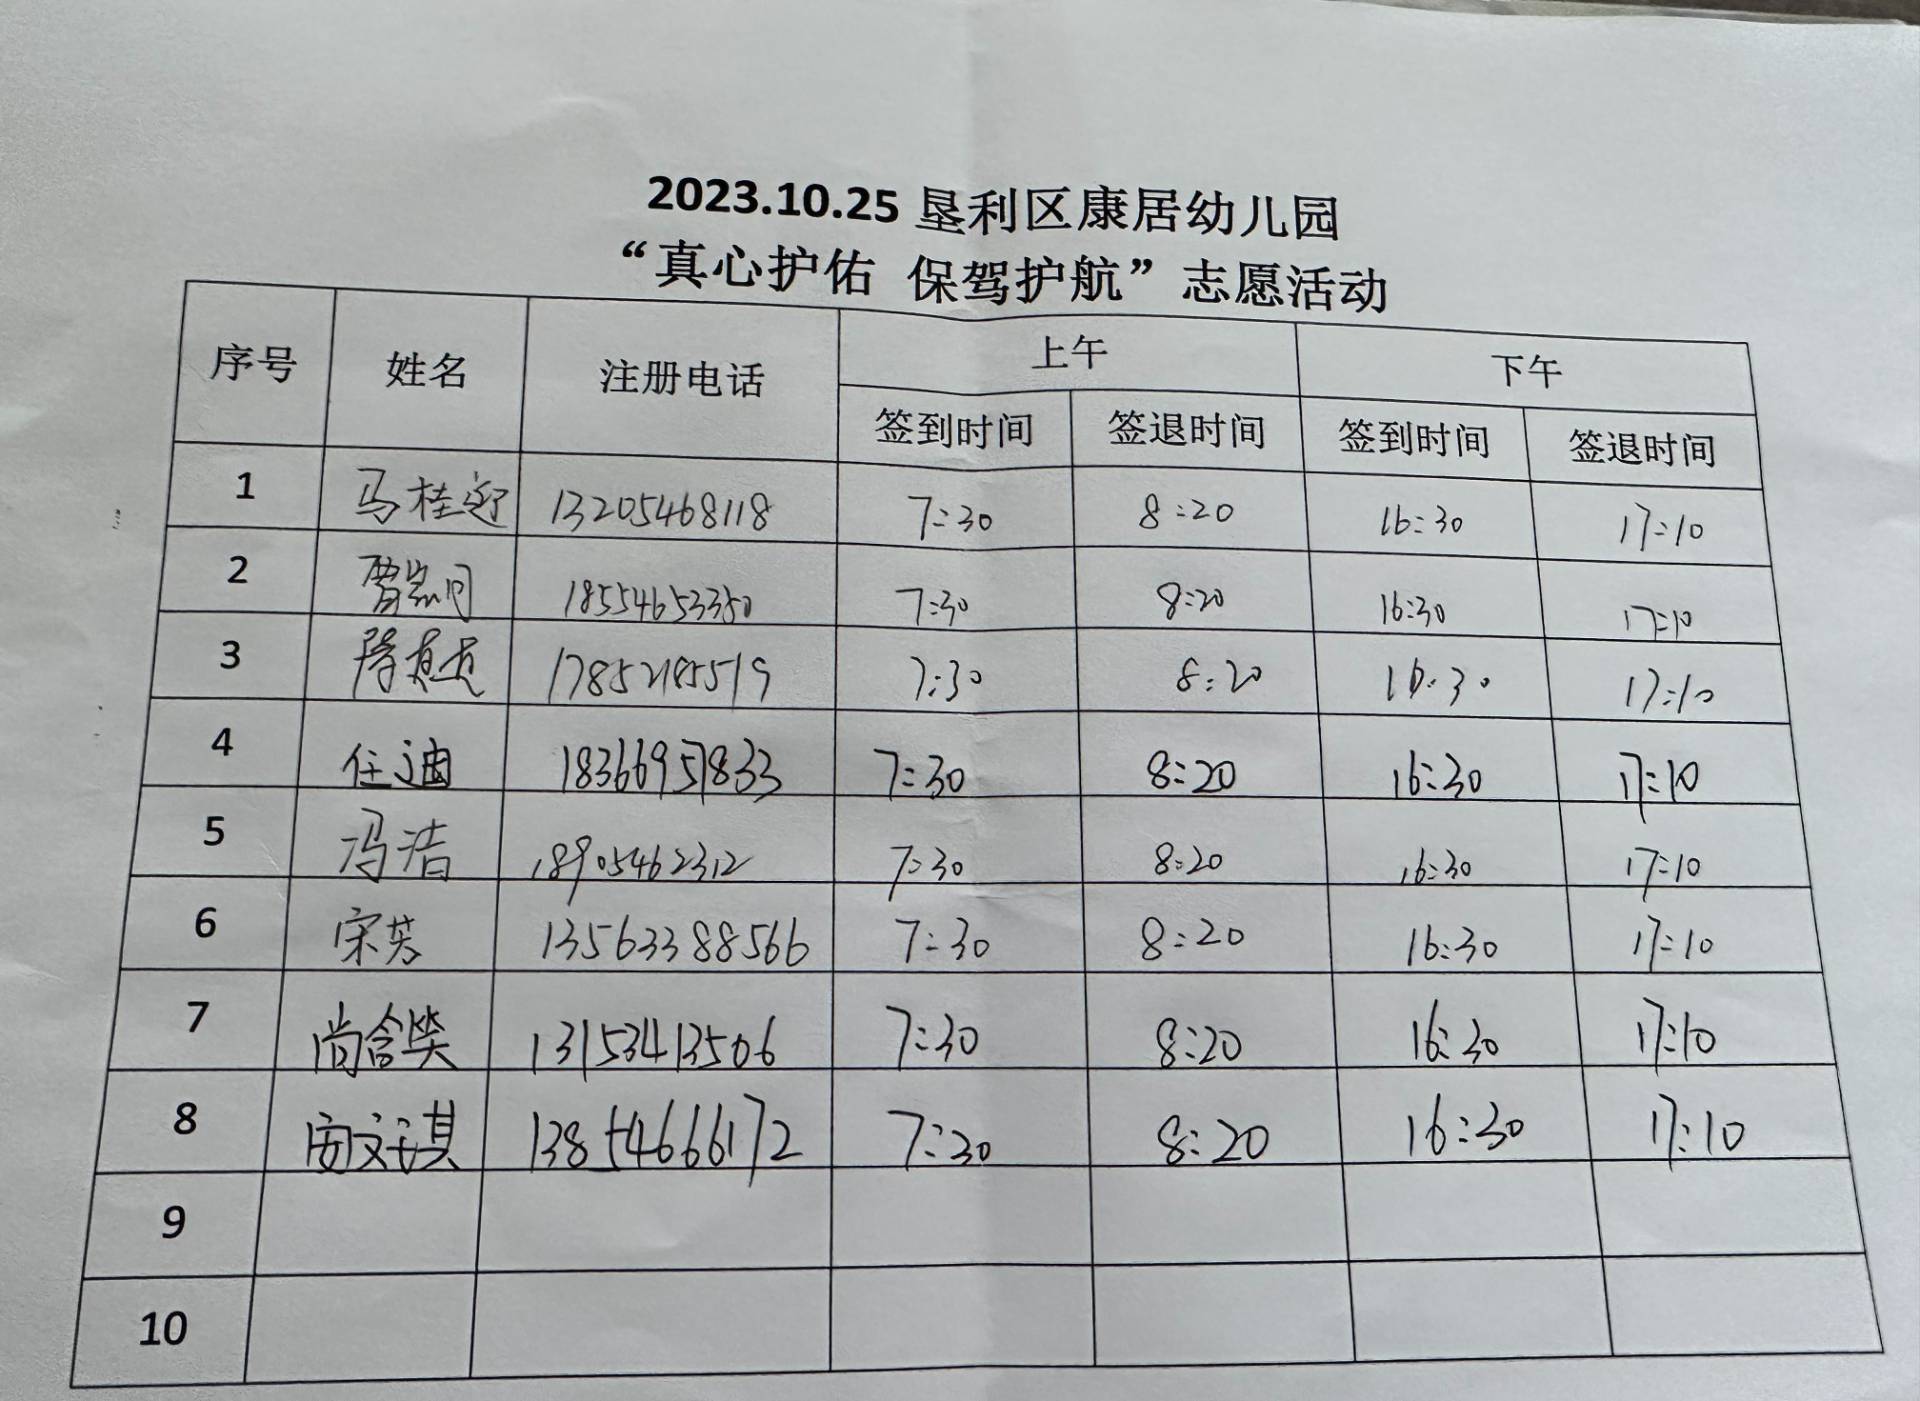 2023.10.25 垦利区康居幼儿园
“真心护佑 保驾护航”志愿活动
序号 姓名 注册电话 上午 下午
签到时间 签退时间 签到时间 签退时间
1 马桂迎 13205468118 7:30 8:20 16:30 17:10
2 18554653350 7:30 8:20 16:30 17:10
3 17852185519 7:30 8:20 16:30 17:10
4 任迪 18366957833 7:30 8:20 16:30 17:10
5 冯洁 18905462312 7:30 8:20 16:30 17:10
6 宋芳 13563388566 7:30 8:20 16:30 17:10
7 尚含 13153413506 7:30 8:20 16:30 17:10
8 文琪 13854666172 7:30 8:20 16:30 17:10
9
10